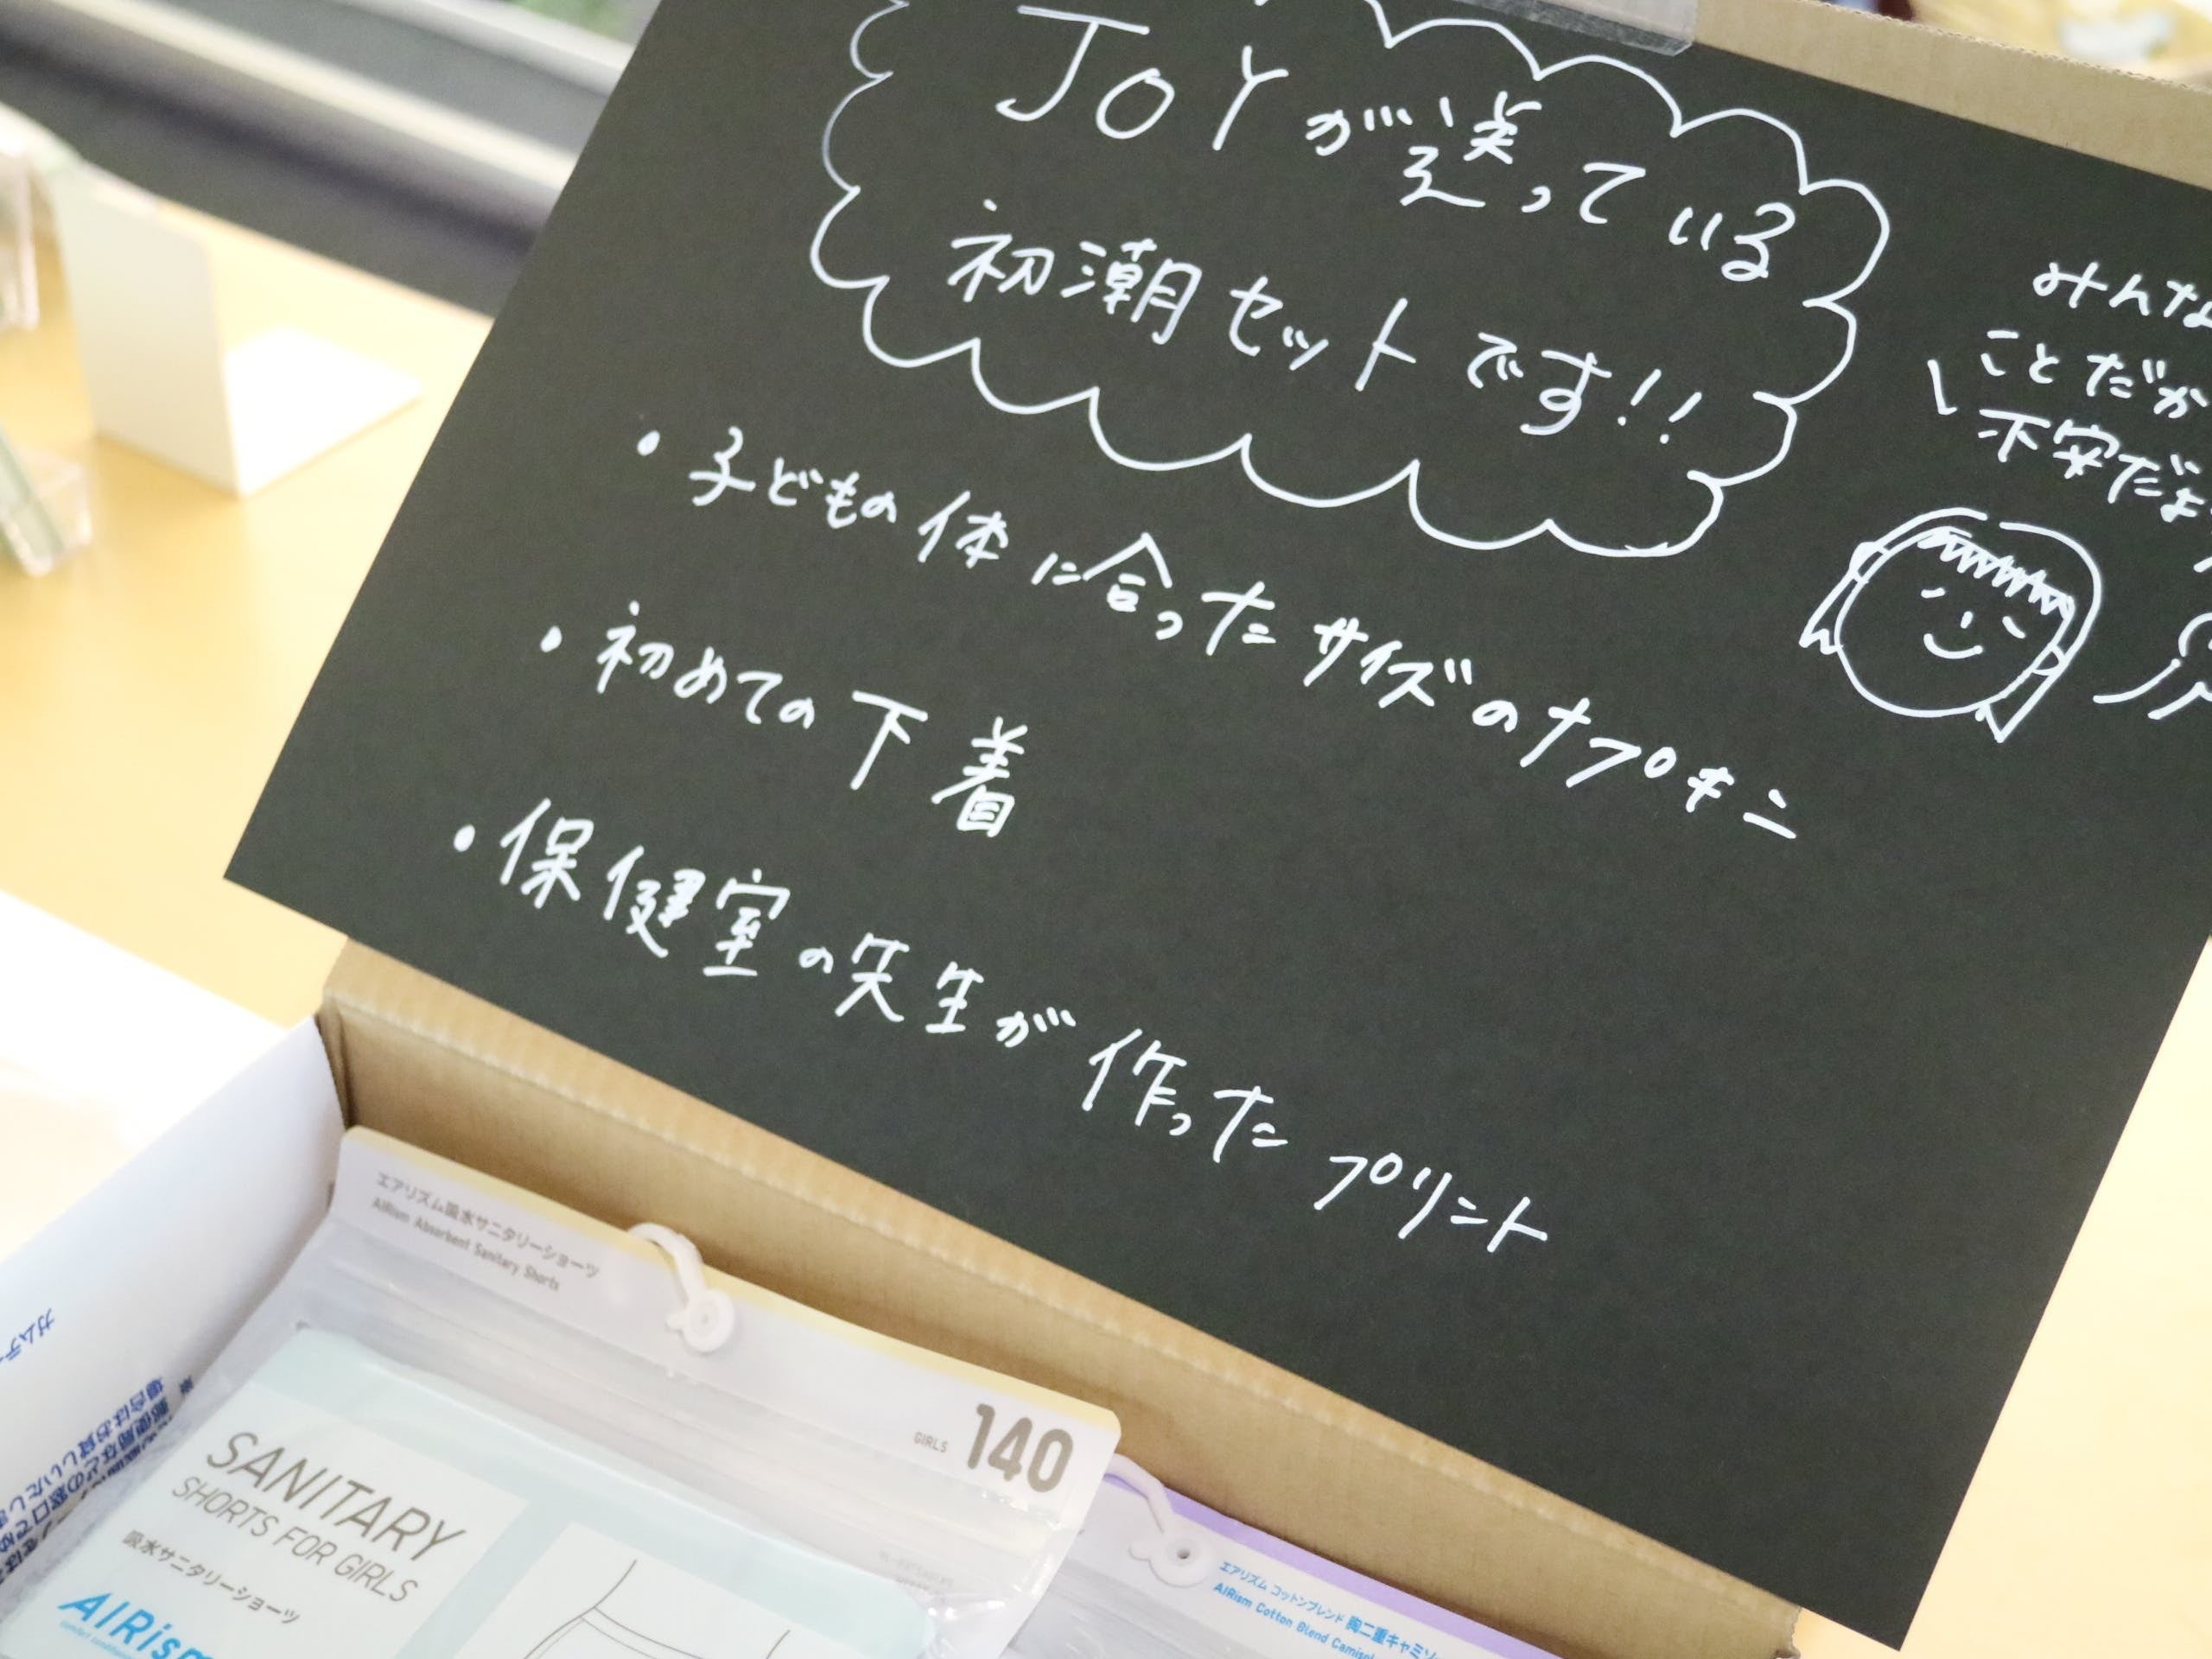 JOYが送っている
初潮セットです!!
みんな
ことだか
不安だよ
・子どもの体に合ったサイズのナプキン
・初めての下着
・保健室の先生が作ったプリント
エアリズム吸水サニタリーショーツ
AIRism Absorbent Sanitary Shorts
GIRLS 140
SANITARY
SHORTS FOR GIRLS
吸水サニタリーショーツ
AIRism
エアリズム コットンブレンド 胸二重キャミソ
AIRism Cotton Blend Camisol
ガムテ